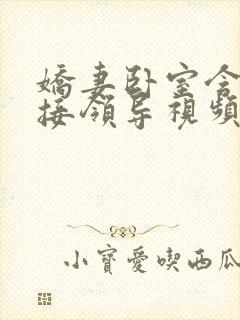 嬌妻卧室含
接領导視頻
小寶愛喫西瓜